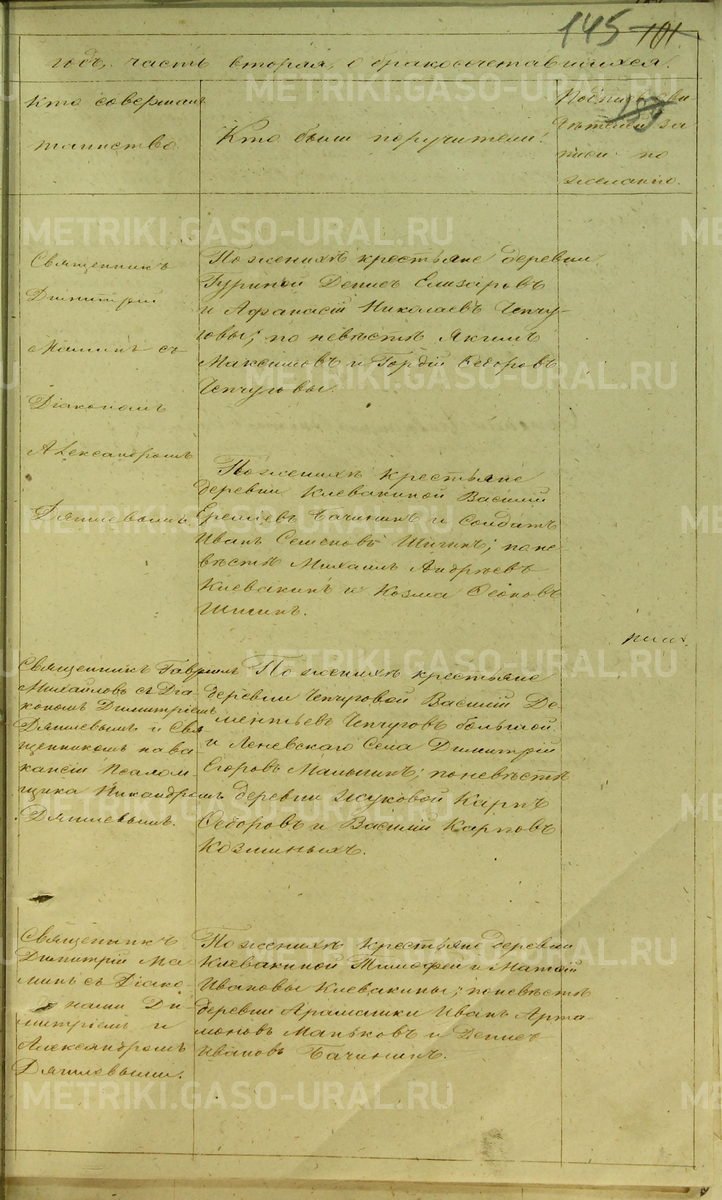 145 101
годъ, часть вторая, о бракосочетавшихся.
Кто совершалъ
таинство.
Кто были поручители.
Подписъ сви
дѣтелей за
писи по
желанію.
189
Священникъ
Димитрій
Маминъ съ
Діакономъ
Александромъ
Дягилевымъ
По женихѣ крестьяне деревни
Гуриной Денис Елизаровъ
и Афанасій Николаевъ Чепчу-
говы; по невѣстѣ Якимъ
Максимовъ и Гордій Ѳедоровъ
Чепчуговы.
По женихѣ крестьяне
деревни Клевакиной Василій
Еремѣевъ Бачининъ и Солдатъ
Иванъ Семеновъ Шигинъ; по не
вѣстѣ Михаилъ Андреевъ
Клевакинъ и Козма
Шигинъ.
Священникъ Гавріилъ
Михайловъ съ Діа
кономъ Димитріемъ
Дягилевымъ и Свя
щенникомъ на ва
кансіи Псалом-
щика Никандромъ
Дягилевымъ.
По женихѣ крестьяне
деревни Чепчуговой Василій Де-
ментьевъ Чепчуговъ большой
и Леневскаго Села Димитрій
Егоровъ Мальгинъ; по невѣстѣ
деревни Жуковой Карпъ
Ѳедоровъ и Василій Карповъ
Козминыхъ.
Священникъ
Димитрій Ма
минъ съ Діако-
нами Ди
митріемъ и
Александромъ
Дягилевыми.
По женихѣ крестьяне деревни
Клевакиной Тимофей и Матѳій
Ивановы Клевакины; по невѣстѣ
деревни Арамашки Иванъ Арта-
моновъ Маньковъ и Денисъ
Ивановъ Бачининъ.
METRIKI.GASO-URAL.RU
METRIKI.GASO-URAL.RU
METRIKI.GASO-URAL.RU
METRIKI.GASO-URAL.RU
METRIKI.GASO-URAL.RU
METRIKI.GASO-URAL.RU
METRIKI.GASO-URAL.RU
METRIKI.GASO-URAL.RU